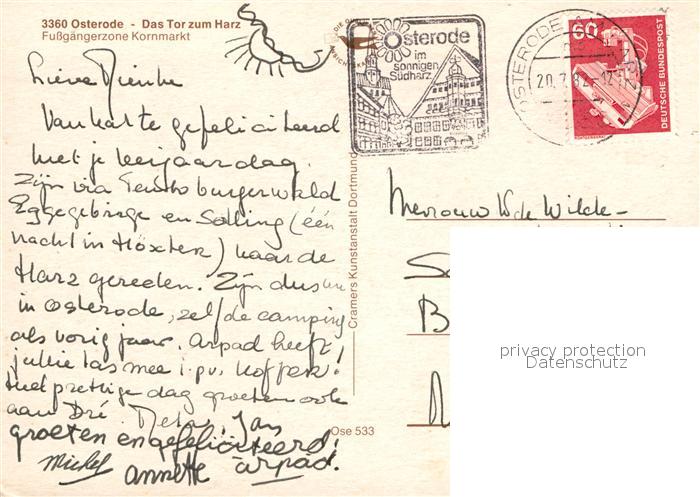 3360 Osterode - Das Tor zum Harz
Fußgängerzone Kornmarkt
Lieve Nienke
Van harte gefeliciteerd
met je verjaardag.
Zijn via Teutoburgerwald
Eggegebirge en Solling (één
nacht in Höxter) naar de
Harz gereden. Zijn dus nu
in Osterode, zelfde camping
als vorig jaar. Arpad heeft
jullie tas mee i.p.v. koffer!
Met prettige dag groeten ook
aan Dré. Jan
groeten en gefeliciteerd!
Michel annette arpád.
Osterode
im
sonnigen
Südharz
OSTERODE
20.7.82 - 12
60
DEUTSCHE BUNDESPOST
Cramers Kunstanstalt Dortmund
Mevrouw de Wilde-
Ose 533
privacy protection
Datenschutz